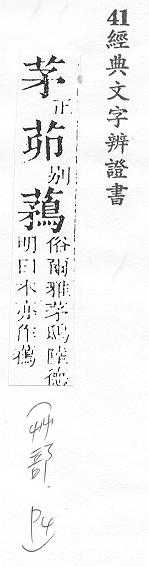 41 經典文字辨證書
茅正茆別
俗爾雅茅鴟陸德
明曰本亦作
(艸部. P4)